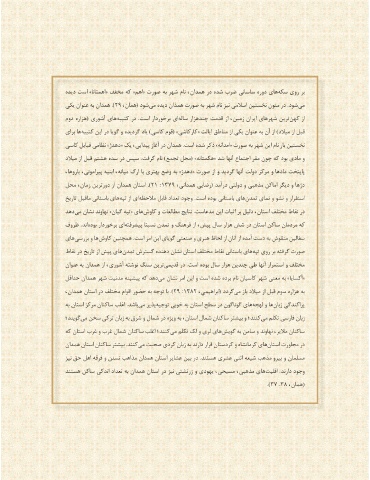 بر روی سکه‌های دوره ساسانی ضرب شده در همدان، نام شهر به صورت «اهم» که مخفف «اهمتانا» است دیده
می‌شود. در متون نخستین اسلامی نیز نام شهر به صورت همدان دیده می‌شود (همان، ۲۹). همدان به عنوان یکی
از کهن‌ترین شهرهای ایران زمین، از قدمت چندهزار ساله‌ای برخوردار است. در کتیبه‌های آشوری (هزاره دوم
قبل از میلاد) از آن به عنوان یکی از مناطق ایالت «کارکاشی» (قوم کاسی) یاد گردیده و گویا در این کتیبه‌ها برای
نخستین بار نام این شهر به صورت «امدانه» ذکر شده است. همدان در آغاز پیدایی، یک «دهدژ» نظامی قبایل کاسی
و مادی بود که چون مقر اجتماع آنها شد «هگمتانه» (محل تجمع) نام گرفت. سپس در سده هشتم قبل از میلاد
پایتخت مادها و مرکز دولت آنها گردید و از صورت «دهدژ» به وضع بهتری با ارک میانه، ابنیه پیرامونی، باروها،
دژها و دیگر اماکن مذهبی و دولتی درآمد (رضایی همدانی، ۱۳۷۹: ۲۱). استان همدان از دیرترین زمان، محل
استقرار و نشو و نمای تمدن‌های باستانی بوده است. وجود تعداد قابل ملاحظه‌ای از تپه‌های باستانی ماقبل تاریخ
در نقاط مختلف استان، دلیل بر اثبات این مدعاست. نتایج مطالعات و کاوش‌های «تپه گیان» نهاوند نشان می‌دهد
که مردمان ساکن استان در شش هزار سال پیش، از فرهنگ و تمدن نسبتا پیشرفته‌ای برخوردار بوده‌اند. ظروف
سفالین منقوش به دست آمده از آنان از لحاظ هنری و صنعتی گویای این امر است. همچنین کاوش‌ها و بررسی‌های
صورت گرفته بر روی تپه‌های باستانی نقاط مختلف استان نشان دهنده گسترش تمدن‌های پیش از تاریخ در نقاط
مختلف و استمرار آنها طی چندین هزار سال بوده است. در قدیمی‌ترین سنگ نوشته آشوری، از همدان به عنوان
«اکسایا» به معنی شهر کاسیان نام برده شده است و این امر نشان می‌دهد که پیشینه مدنیت شهر همدان حداقل
به هزاره سوم قبل از میلاد باز می‌گردد (ابراهیمی، ۱۳۸۲: ۲۹). با توجه به حضور اقوام مختلف در استان همدان،
پراکندگی زبان‌ها و لهجه‌های گوناگون در سطح استان به خوبی توجیه‌پذیر می‌باشد. اغلب ساکنان مرکز استان به
زبان فارسی تکلم می‌کنند؛ و بیشتر ساکنان شمال استان، به ویژه در شمال و شرق به زبان ترکی سخن می‌گویند؛
ساکنان ملایر، نهاوند و سامن به گویش‌های لری و لک تکلم می‌کنند؛ اغلب ساکنان شمال غرب و غرب استان که
در مجاورت استان‌های کرمانشاه و کردستان قرار دارند به زبان کردی صحبت می‌کنند. بیشتر ساکنان استان همدان
مسلمان و پیرو مذهب شیعه اثنی عشری هستند. در بین عشایر استان همدان مذاهب تسنن و فرقه اهل حق نیز
وجود دارند. اقلیت‌های مذهبی، مسیحی، یهودی و زرتشتی نیز در استان همدان به تعداد اندکی ساکن هستند
(همان، ۳۸، ۳۷).